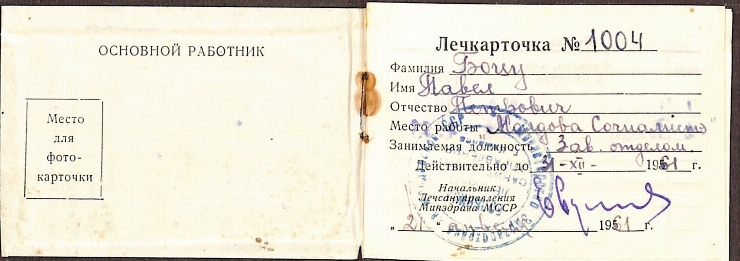 ОСНОВНОЙ РАБОТНИК
Место
для
фото-
карточки
Лечкарточка № 1004
Фамилия Боцу
Имя Павел
Отчество Петрович
Место работы „Молдова Сочиалистэ"
Занимаемая должность Зав. отделом.
Действительно до 31-XII- 1961 г.
Начальник
Лечсануправления
Минздрава МССР
„21" 1961 г.